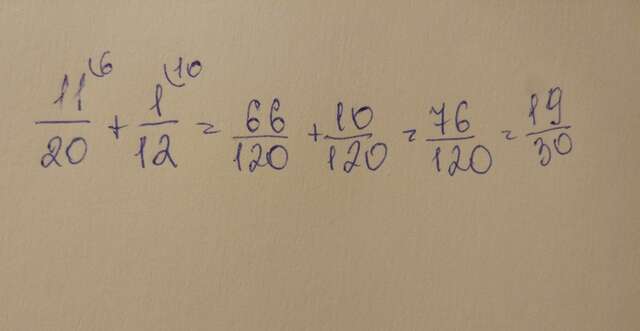 11⁽⁶/20 + 1⁽¹⁰/12 = 66/120 + 10/120 = 76/120 = 19/30